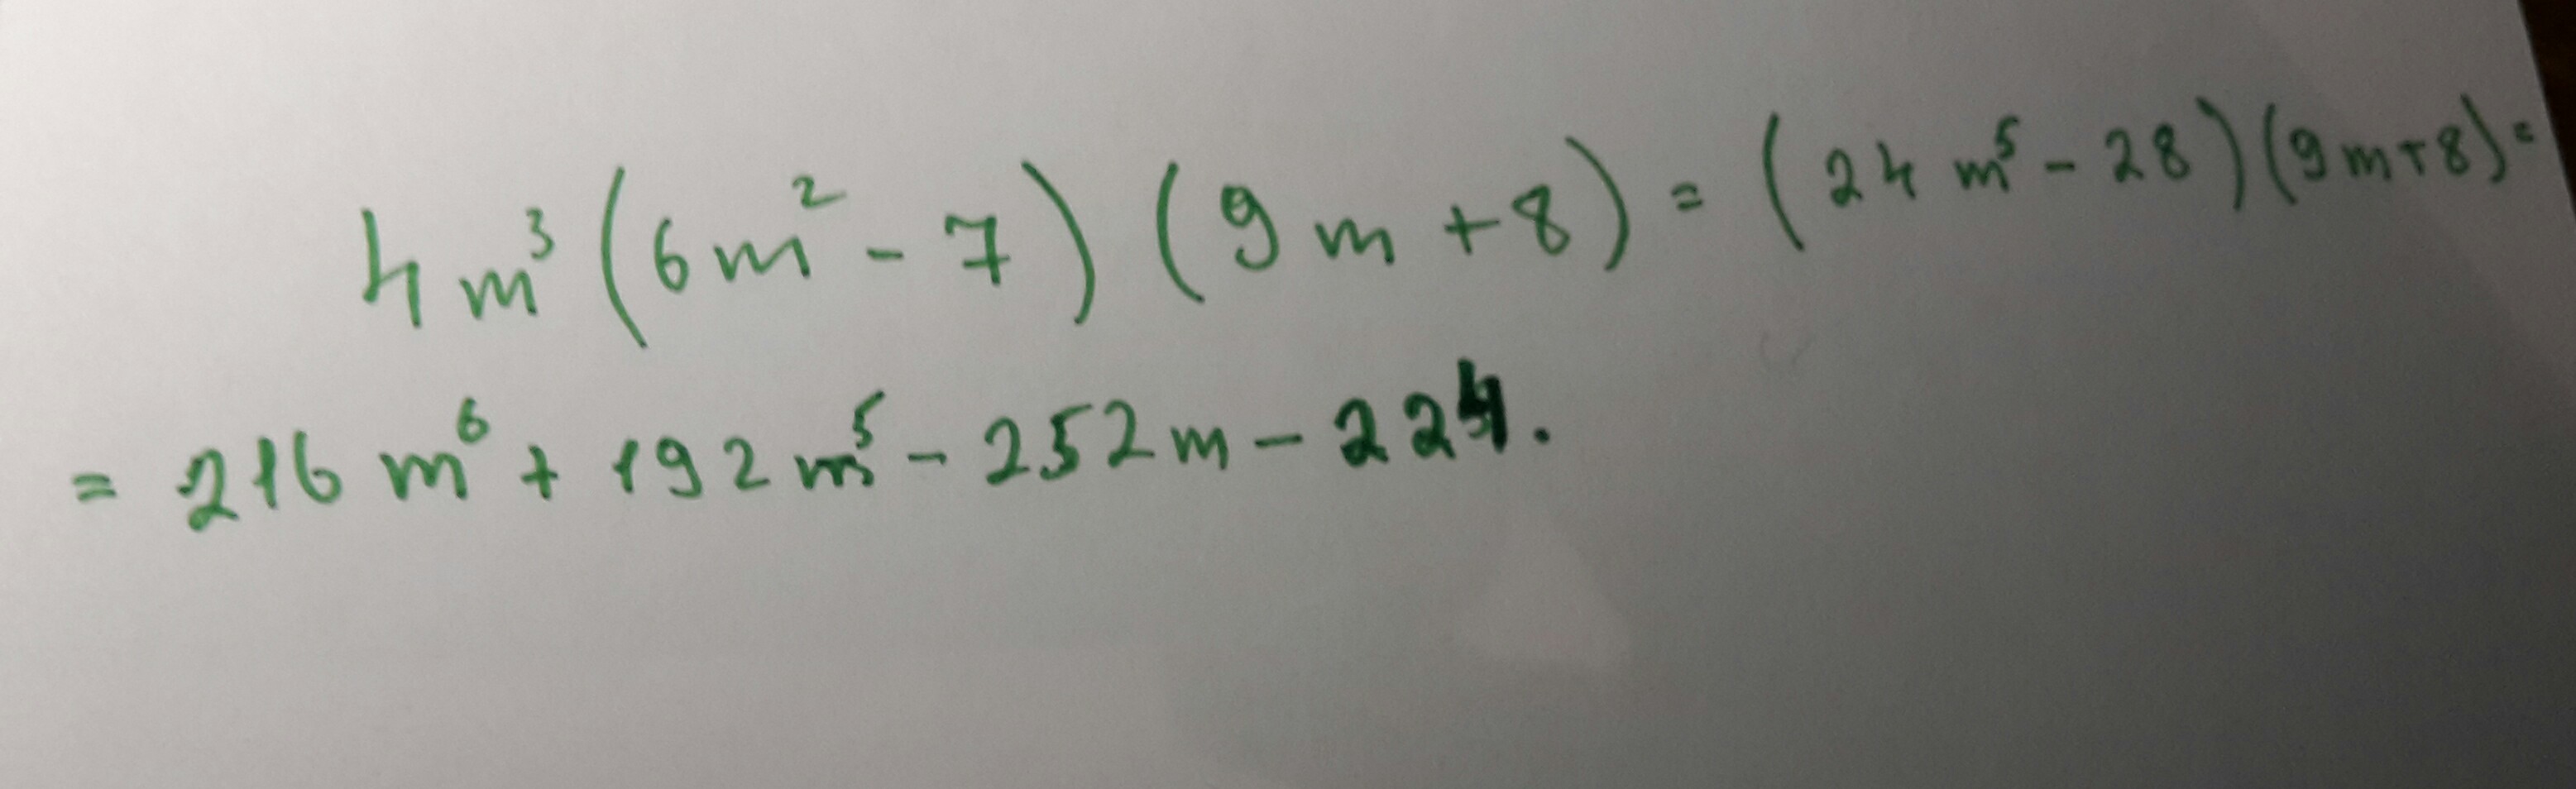 4m³(6m²-7)(9m+8)=(24m⁵-28)(9m+8)=
=216m⁶+192m⁵-252m-224.